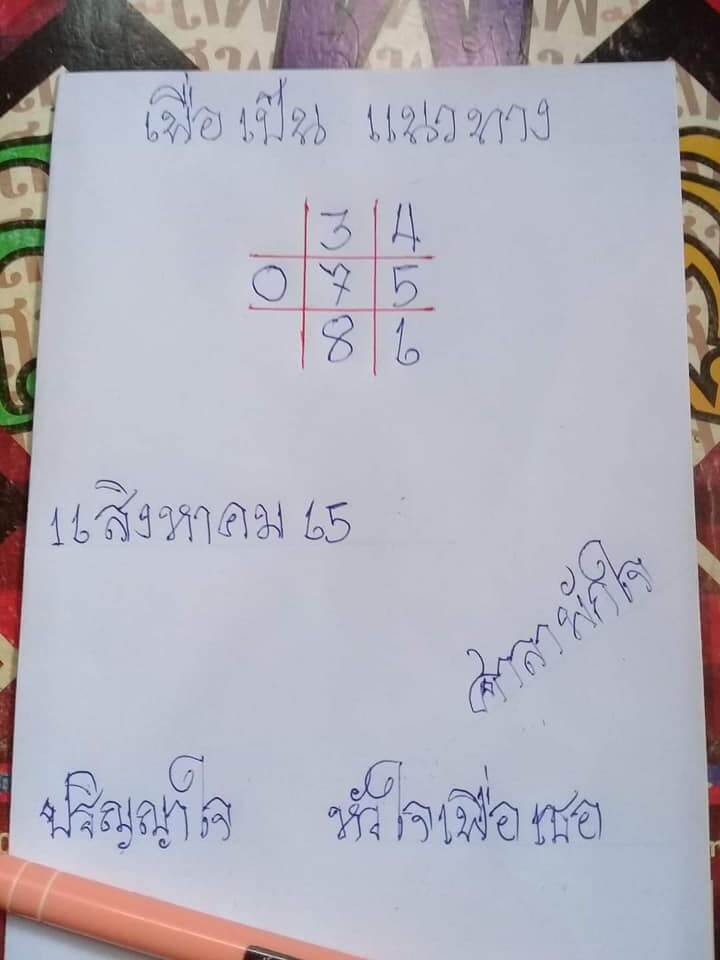 เพื่อเป็น แนวทาง
3 4
0 7 5
8 6
16 สิงหาคม 65
ศาลาพักใจ
ปริญญาใจ หัวใจเพื่อเธอ